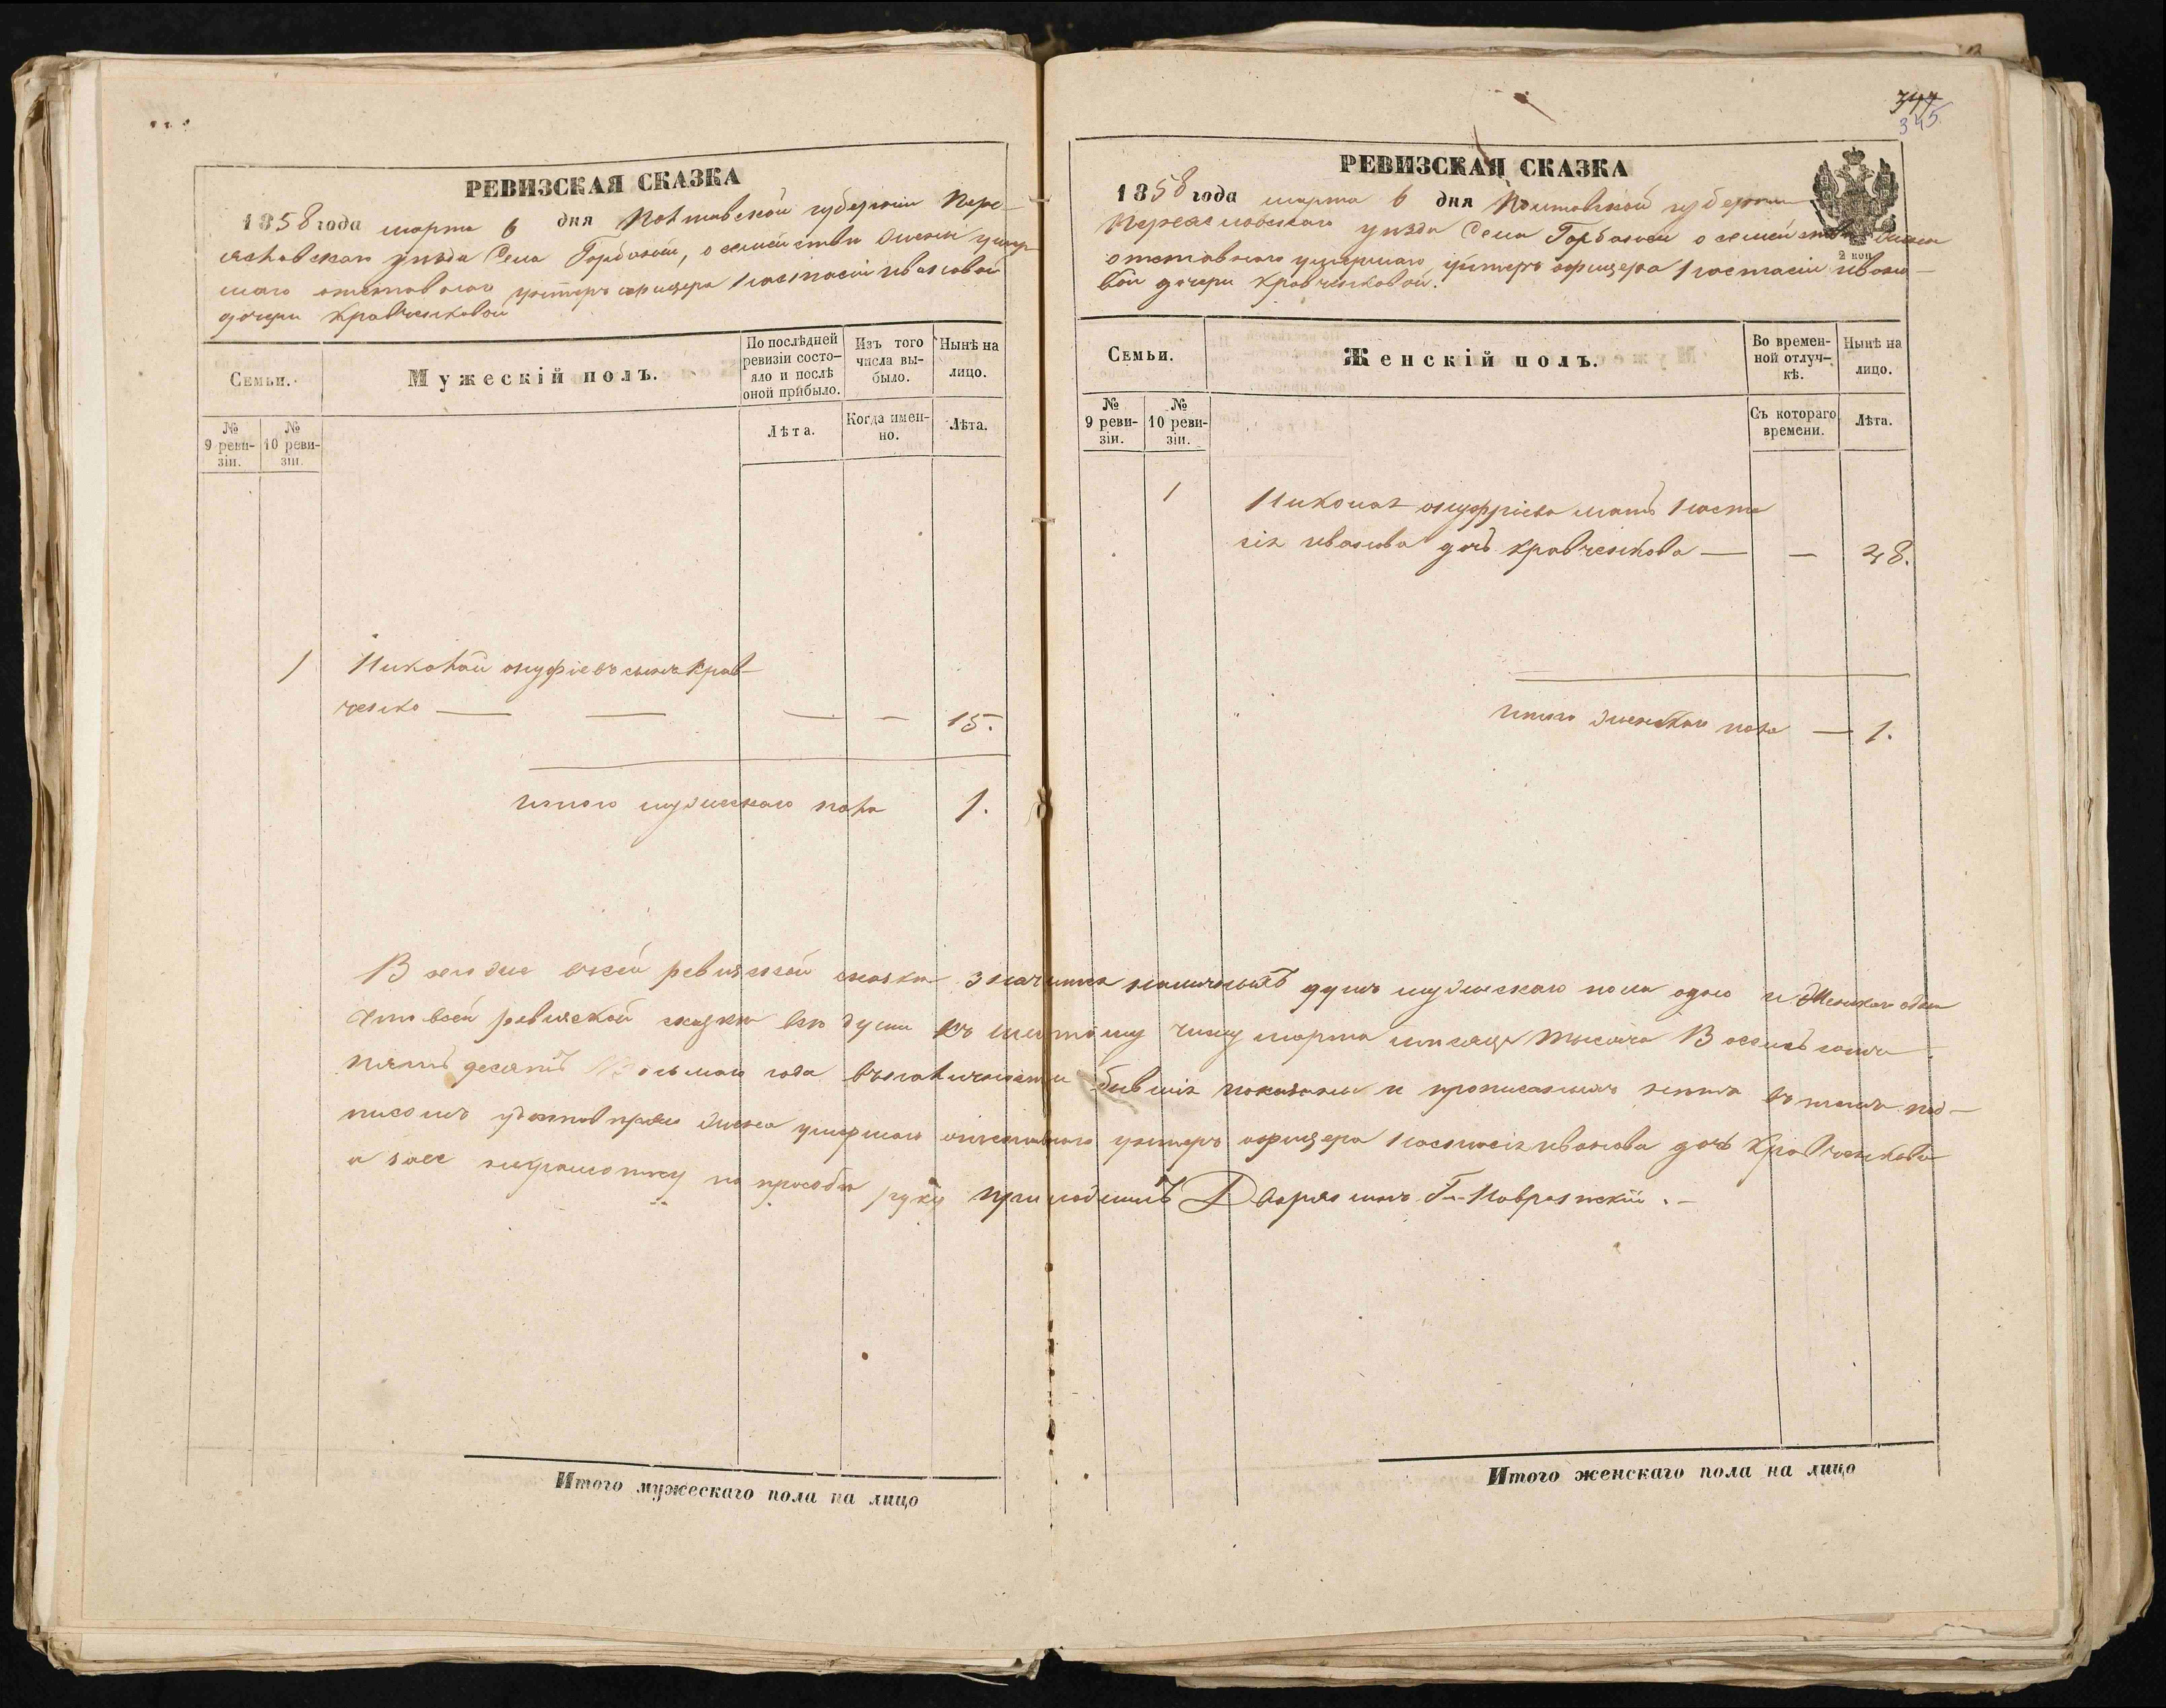 РЕВИЗСКАЯ СКАЗКА
1858 года марта 6 дня Полтавской губернии Пере-
яславскаго уезда Села Горбаней, о семействе жены умер-
шаго отставного унтеръ офицера Настасіи Ивановой
дочери Кравченковой
Семьи.
Мужескій полъ.
По послѣдней ревизіи состо-
яло и послѣ оной прибыло.
Изъ того числа вы-
было.
Нынѣ на лицо.
№ 9 реви-
зіи.
№ 10 реви-
зіи.
Лѣта.
Когда имен-
но.
Лѣта.
1 Николай онуфріевъ сынъ Крав-
ченко — — — — 15.
итого мужескаго пола 1.
344
345
РЕВИЗСКАЯ СКАЗКА
1858 года марта 6 дня Полтавской губерніи
Переяславскаго уезда Села Горбаней о семействе жены
2 коп
отставного умершаго унтеръ офицера Настасіи Ивано-
вой дочери Кравченковой.
Семьи.
Женскій полъ.
Во времен-
ной отлуч-
кѣ.
Нынѣ на лицо.
№ 9 реви-
зіи.
№ 10 реви-
зіи.
Съ котораго времени.
Лѣта.
1 Николая онуфріева мать Наста
сія иванова дочь Кравченкова — — 48.
итого женскаго пола — 1.
ревизской сказки значится наличныхъ душъ мужескаго пола одно и Женскаго одна
что всей ревизской сказки все души къ шестому числу марта месяца тысяча Восемь сотъ
пятьдесятъ Восьмаго года въ наличности бывшія показаны и прописанныхъ нетъ въ томъ под-
писомъ жена умершаго отставного унтеръ офицера Настасія иванова дочь Кравченкова
а за ее неграмотну по прозбе руку приложилъ Дворянинъ
Итого мужескаго пола на лицо
Итого женскаго пола на лицо